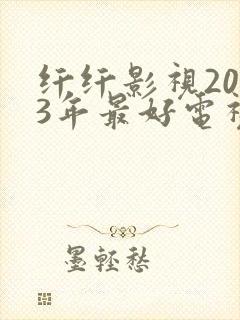 纤纤影視20
3年最好電視
墨輕愁